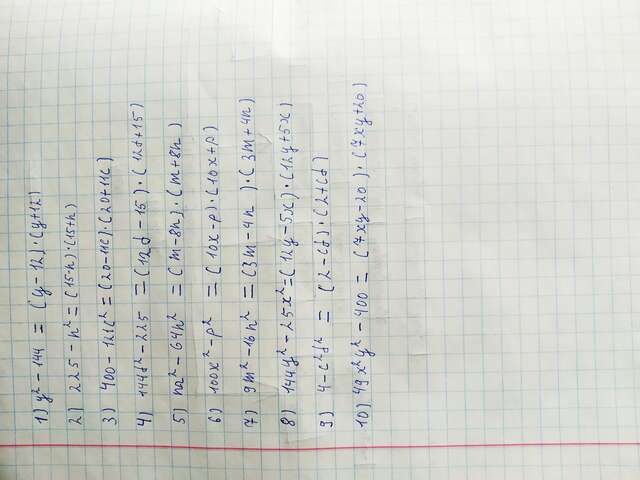 1) y² - 144 = (y - 12)·(y+12)
2) 225 - n² = (15-n)·(15+n)
3) 400 - 121c² = (20-11c)·(20+11c)
4) 144d² - 225 = (12d - 15)·(12d+15)
5) m² - 64n² = (m-8n)·(m+8n)
6) 100x² - p² = (10x-p)·(10x+p)
7) 9m² - 16n² = (3m-4n)·(3m+4n)
8) 144y² - 25x² = (12y-5x)·(12y+5x)
9) 4 - c²d² = (2-cd)·(2+cd)
10) 49x²y² - 400 = (7xy-20)·(7xy+20)